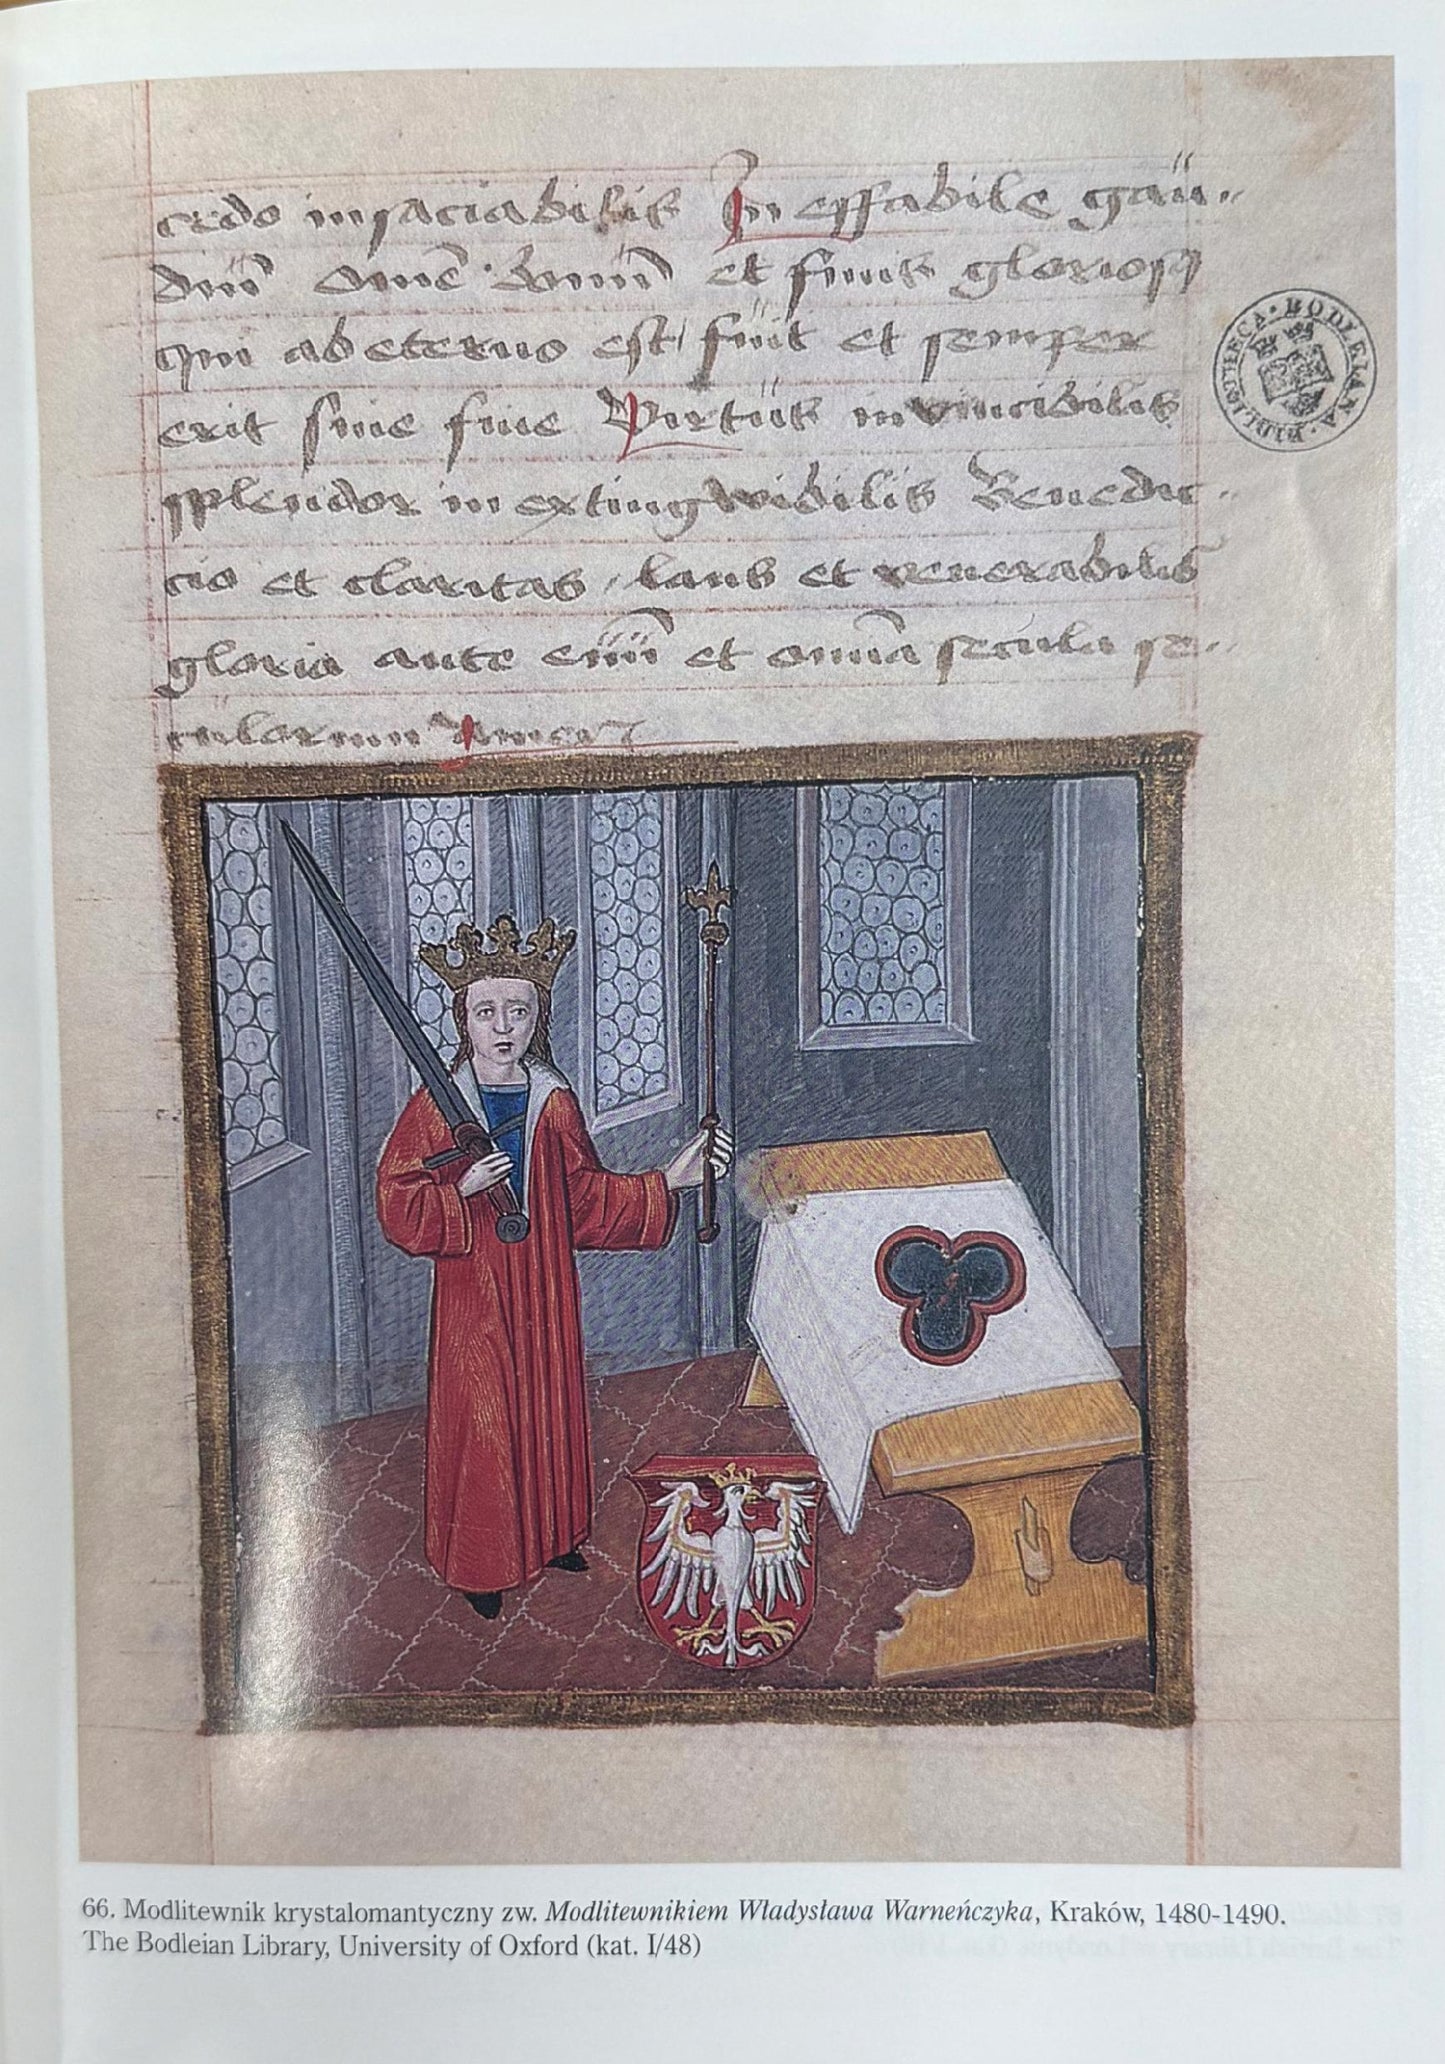 cedo insaciabilis In effabile gau
diu͞ Om͞e bonu͞ et finis gloriosꝰ
qui ab eterno est fuit et semper
erit sine fine Virtus invincibilis
splendor in extingwibilis Benedic
cio et claritas / laus et venerabilis
gloria ante eu͞u͞ et om͞ia secula se
culorum Amen
BIBLIOTHECA · BODLEIANA ·
66. Modlitewnik krystalomantyczny zw. Modlitewnikiem Władysława Warneńczyka, Kraków, 1480-1490.
The Bodleian Library, University of Oxford (kat. I/48)